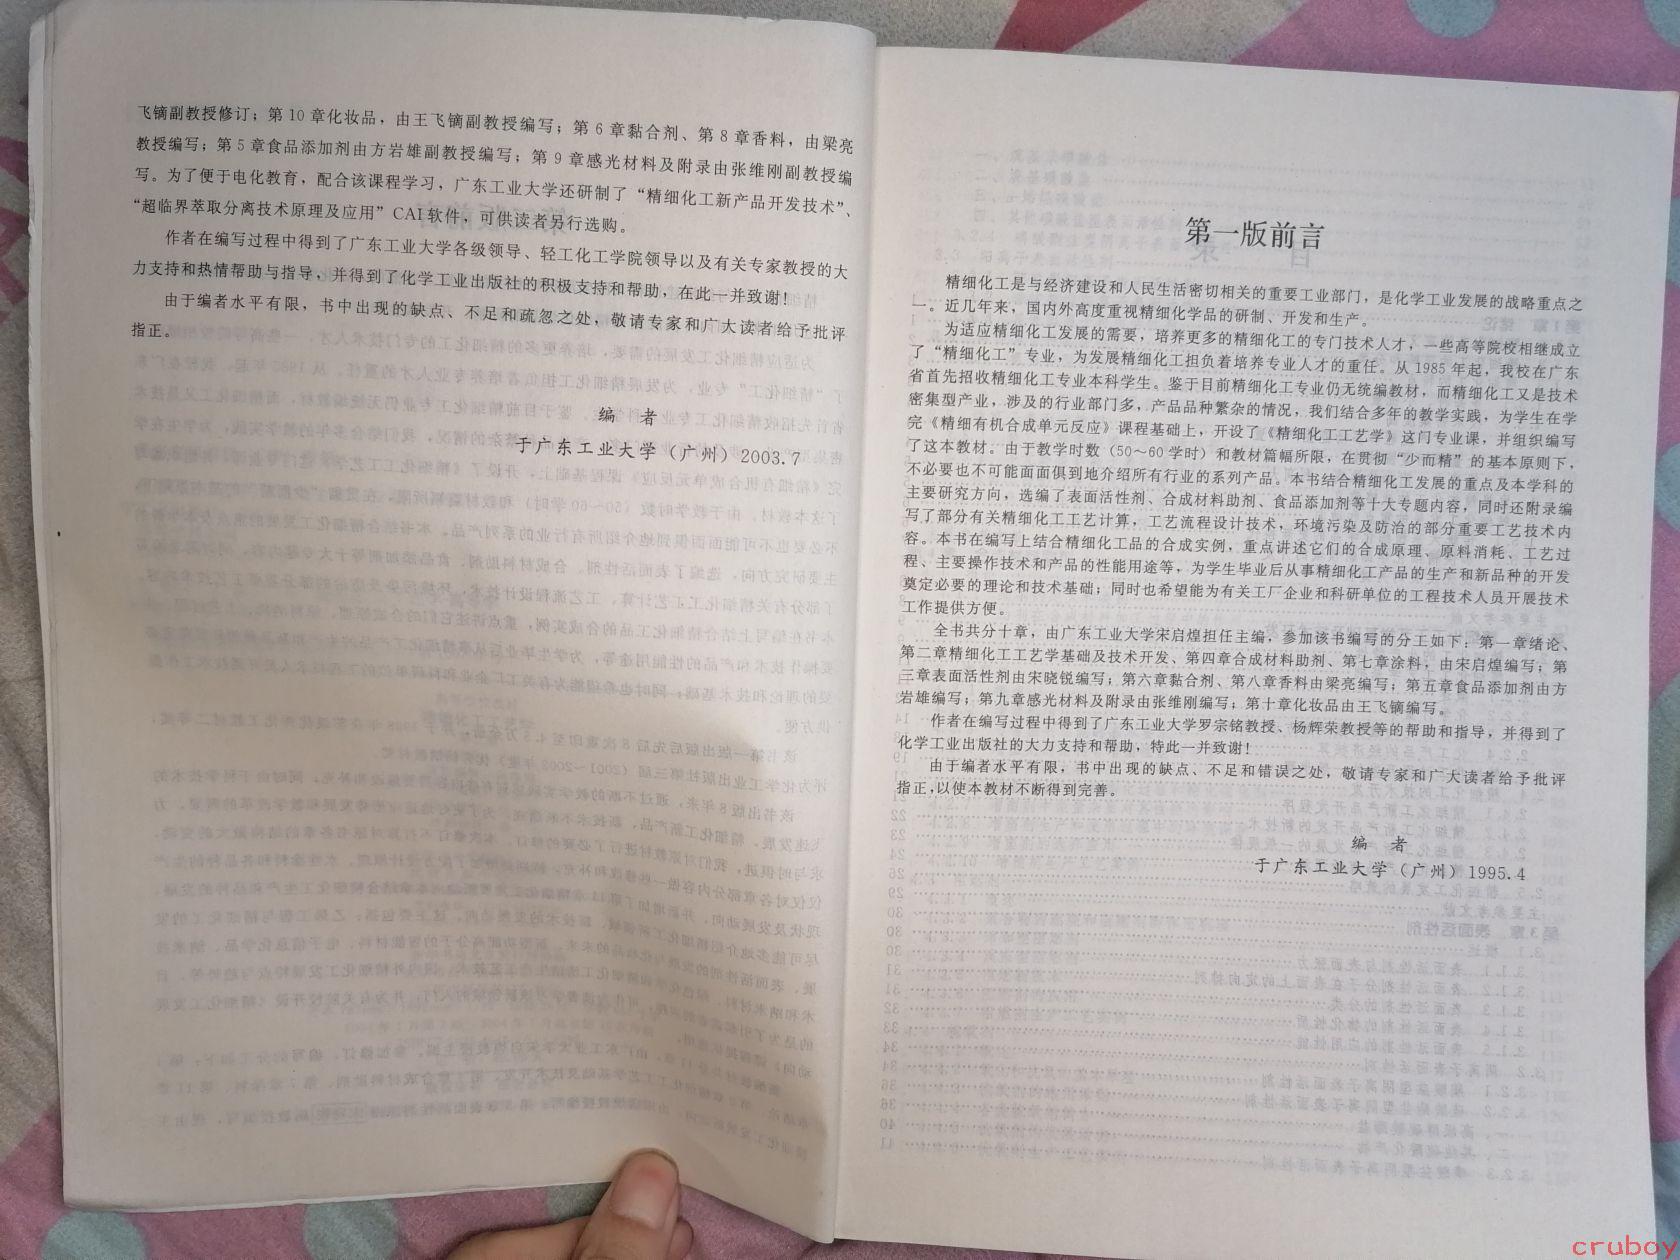 飞镝副教授修订；第 10 章化妆品，由王飞镝副教授编写；第 6 章黏合剂、第 8 章香料，由梁亮
教授编写；第 5 章食品添加剂由方岩雄副教授编写；第 9 章感光材料及附录由张维刚副教授编
写。为了便于电化教育，配合该课程学习，广东工业大学还研制了“精细化工新产品开发技术”、
“超临界萃取分离技术原理及应用”CAI 软件，可供读者另行选购。
作者在编写过程中得到了广东工业大学各级领导、轻工化工学院领导以及有关专家教授的大
力支持和热情帮助与指导，并得到了化学工业出版社的积极支持和帮助，在此一并致谢！
由于编者水平有限，书中出现的缺点、不足和疏忽之处，敬请专家和广大读者给予批评
指正。
编 者
于广东工业大学（广州）2003.7
第一版前言
精细化工是与经济建设和人民生活密切相关的重要工业部门，是化学工业发展的战略重点之
一。近几年来，国内外高度重视精细化学品的研制、开发和生产。
为适应精细化工发展的需要，培养更多的精细化工的专门技术人才，一些高等院校相继成立
了“精细化工”专业，为发展精细化工担负着培养专业人才的重任。从 1985 年起，我校在广东
省首先招收精细化工专业本科学生。鉴于目前精细化工专业仍无统编教材，而精细化工又是技术
密集型产业，涉及的行业部门多，产品品种繁杂的情况，我们结合多年的教学实践，为学生在学
完《精细有机合成单元反应》课程基础上，开设了《精细化工工艺学》这门专业课，并组织编写
了这本教材。由于教学时数（50～60 学时）和教材篇幅所限，在贯彻“少而精”的基本原则下，
不必要也不可能面面俱到地介绍所有行业的系列产品。本书结合精细化工发展的重点及本学科的
主要研究方向，选编了表面活性剂、合成材料助剂、食品添加剂等十大专题内容，同时还附录编
写了部分有关精细化工工艺计算，工艺流程设计技术，环境污染及防治的部分重要工艺技术内
容。本书在编写上结合精细化工品的合成实例，重点讲述它们的合成原理、原料消耗、工艺过
程、主要操作技术和产品的性能用途等，为学生毕业后从事精细化工产品的生产和新品种的开发
奠定必要的理论和技术基础；同时也希望能为有关工厂企业和科研单位的工程技术人员开展技术
工作提供方便。
全书共分十章，由广东工业大学宋启煌担任主编，参加该书编写的分工如下：第一章绪论、
第二章精细化工工艺学基础及技术开发、第四章合成材料助剂、第七章涂料，由宋启煌编写；第
三章表面活性剂由宋晓锐编写；第六章黏合剂、第八章香料由梁亮编写；第五章食品添加剂由方
岩雄编写；第九章感光材料及附录由张维刚编写；第十章化妆品由王飞镝编写。
作者在编写过程中得到了广东工业大学罗宗铭教授、杨辉荣教授等的帮助和指导，并得到了
化学工业出版社的大力支持和帮助，特此一并致谢！
由于编者水平有限，书中出现的缺点、不足和错误之处，敬请专家和广大读者给予批评
指正，以使本教材不断得到完善。
编 者
于广东工业大学（广州）1995.4
cruboy